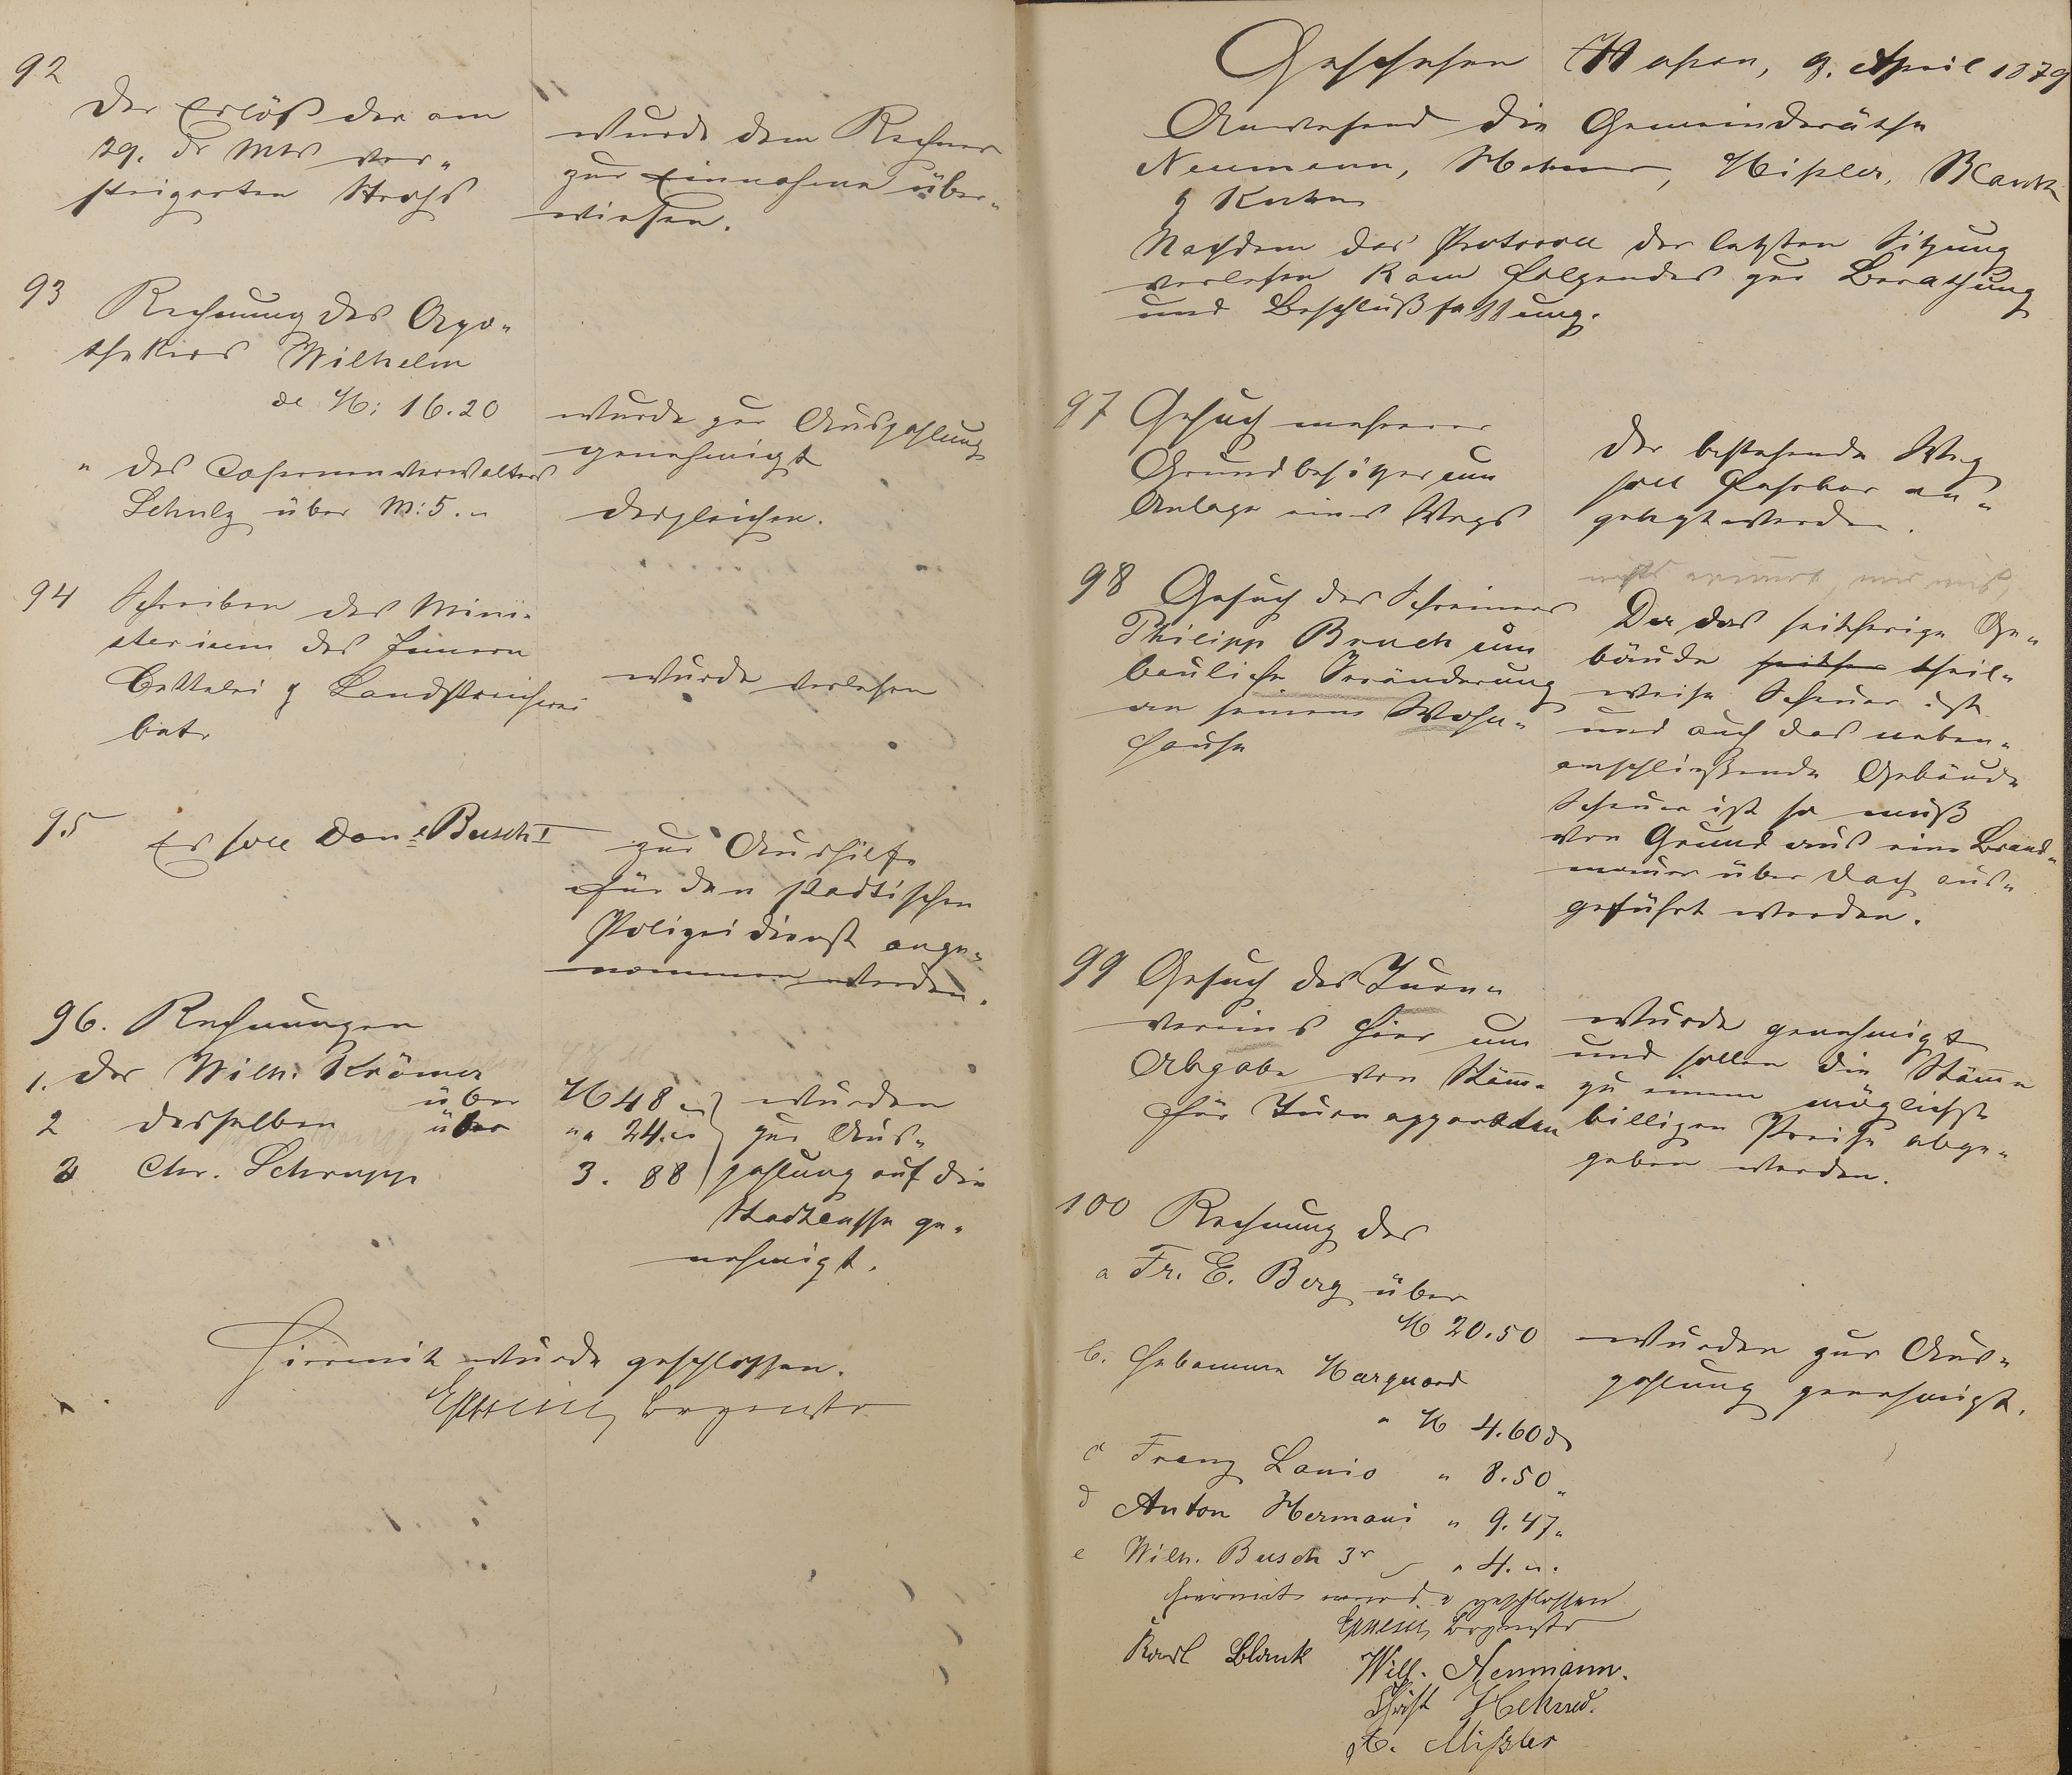 92
Der Erlöß der am
29. ds Mts ver„
steigerten Strohs
wurde dem Rechner
zur Einnahme über„
wiesen.
93
Rechnung des Apo„
thekers Wilhelm
de M: 16.20
wurde zur Auszahlung
genehmigt
„ des Casernenverwalters
Schulz über M: 5. „
desgleichen.
94
Schreiben des Mini„
sterium des Innern
Bettelei & Landstreicherei
betr.
wurde verlesen
95
Es soll Dan: Busch I
zur Aushilfe
für den städtischen
Polizeidienst ange„
nommen werden.
96. Rechnungen
1. des Wilh: Krämer
über M 48 „
2 desselben über „ 24. „
3 Chr. Schrupp 3. 88
wurden
zur Aus„
zahlung auf die
Stadtcasse ge„
nehmigt.
Hiermit wurde geschlossen.
Bgrmstr
Geschehen 9. April 1879
Anwesend die Gemeinderäthe
Neumann, Mißler, Blank
& Kuhn
Nachdem das Protocoll der letzten Sitzung
verlesen kam folgendes zur Berathung
und Beschlußfassung.
97 Gesuch mehrerer
Grundbesitzer um
Anlage eines Wegs
Der bestehende Weg
soll fahrbar an„
gelegt werden.
98 Gesuch des Schreiners
Philipp Bruch um
bauliche Veränderung
an seinem Wohn„
hause
Da das seitherige Ge„
bäude seither theil„
weise Scheuer ist
und auch das neben„
anschließende Gebäude
Scheuer ist so muß
von Grund aus eine Brand„
mauer über Dach aus„
geführt werden.
99 Gesuch des Turn„
vereins hier um
Abgabe von Stäm̄e
für Turnapparaten
wurde genehmigt
und sollen die Stäm̄e
zu einem möglichst
billigen Preise abge„
geben werden.
100 Rechnung des
a Fr. E. Berg über
M 20.50
b. Hebamme Marquard
„ M 4.60 d
c Franz Lanio „ 8.50 „
d Anton Hermani „ 9.47 „
e Wilh. Busch 3r „ 4. „.
wurden zur Aus„
zahlung genehmigt.
Hiermit wurde geschlossen
Bgrmstr
Karl Blank
Wilh. Neumann.
Christ
Mißler